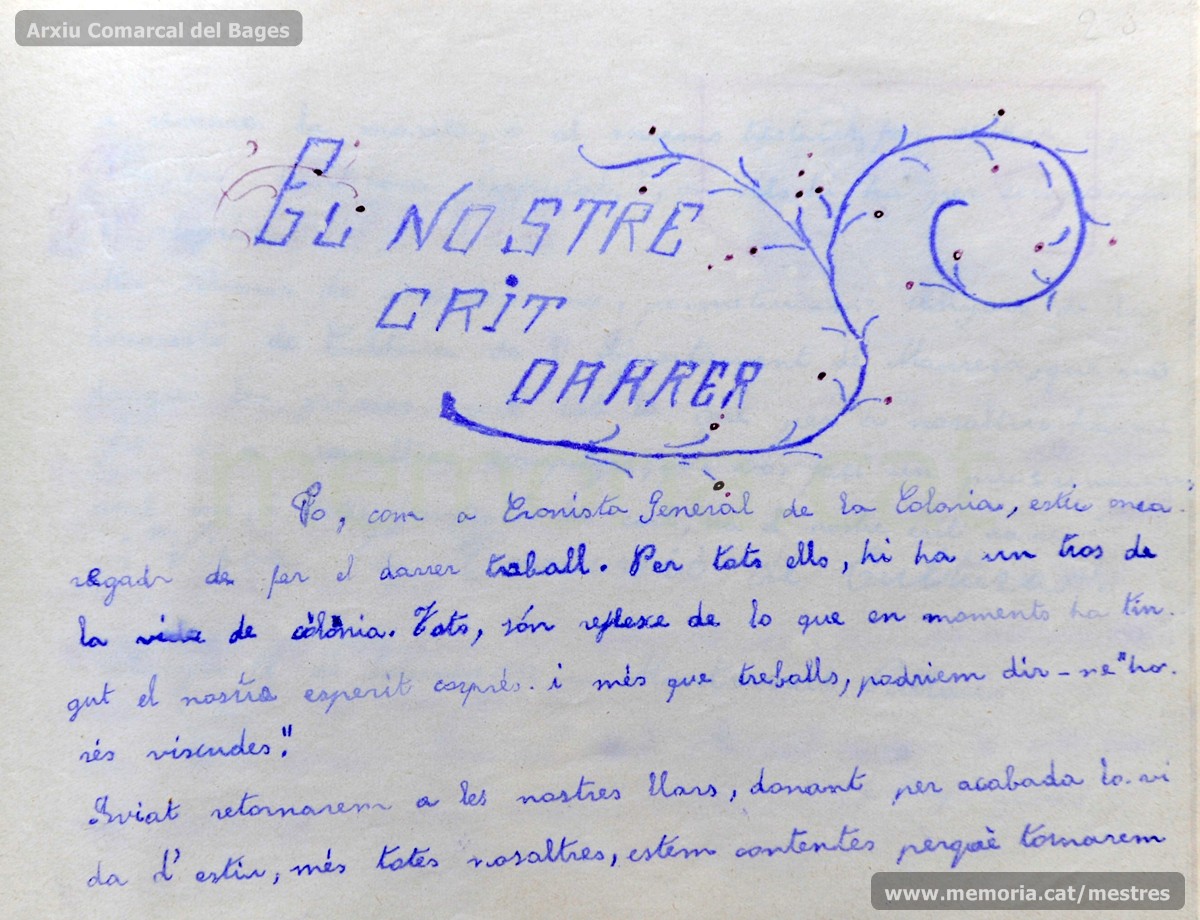 Arxiu Comarcal del Bages
23
EL NOSTRE
CRIT
DARRER
Jo, com a Cronista General de la Colonia, estic enca-
regada de fer el darrer traball. Per tots ells, hi ha un tros de
la vida de colònia. Tots, són reflexe de lo que en moments ha tin-
gut el nostre esperit corprés. i més que treballs, podriem dir-ne "ho-
rés viscudes".
Aviat retornarem a les nostres llars, donant per acabada la vi
da d'estiu, més totes nosaltres, estem contentes perquè tornarem
www.memoria.cat/mestres